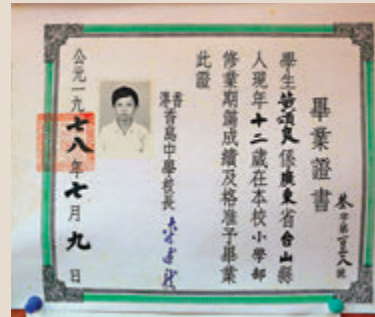 畢業證書
學生黃頌良係廣東省台山縣
人現年十二歲在本校小學部
修業期滿成績及格准予畢業
此證
香港香島中學校長
公元一九七八年七月九日